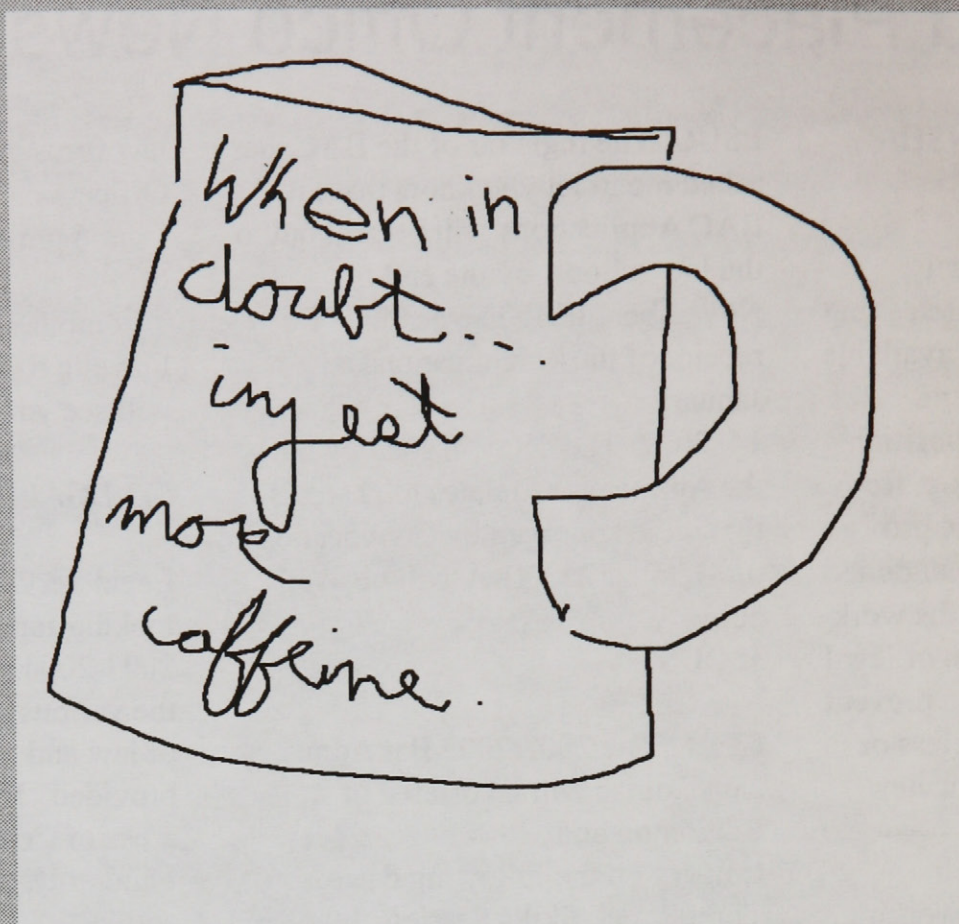 When in
doubt...
ingest
more
caffeine.